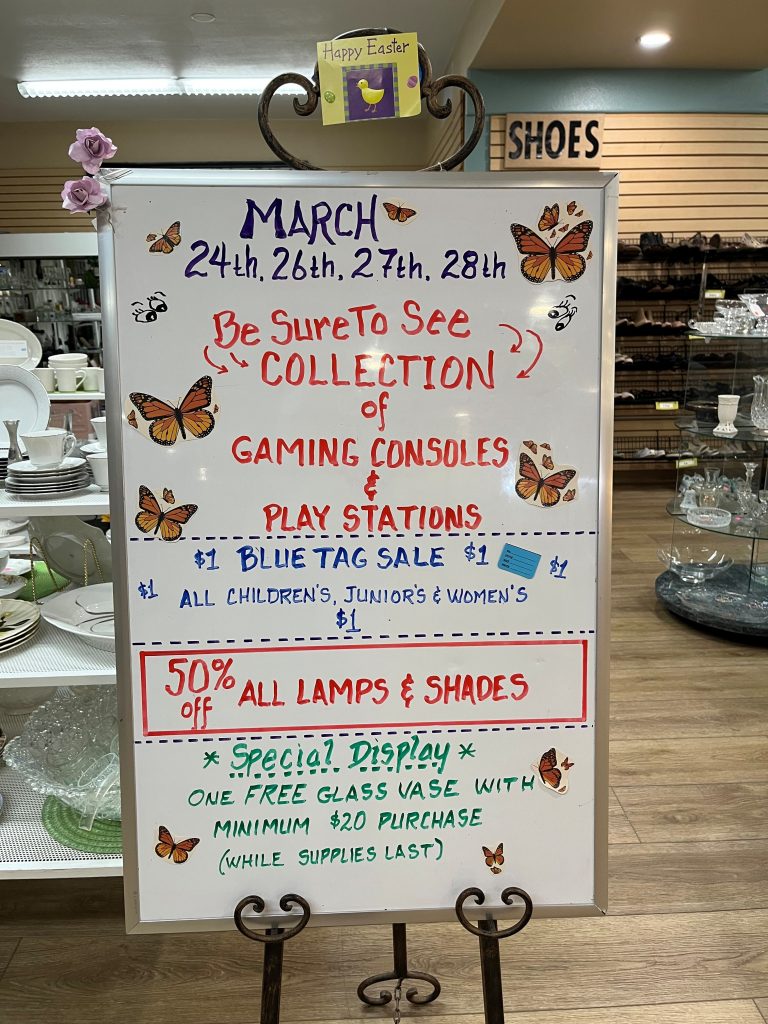 Happy Easter
SHOES
MARCH
24th, 26th, 27th, 28th
Be Sure To See
COLLECTION
of
GAMING CONSOLES
&
PLAY STATIONS
$1 BLUE TAG SALE $1 $1
$1 ALL CHILDREN'S, JUNIOR'S & WOMEN'S
$1
50% off ALL LAMPS & SHADES
* Special Display *
ONE FREE GLASS VASE WITH
MINIMUM $20 PURCHASE
(WHILE SUPPLIES LAST)